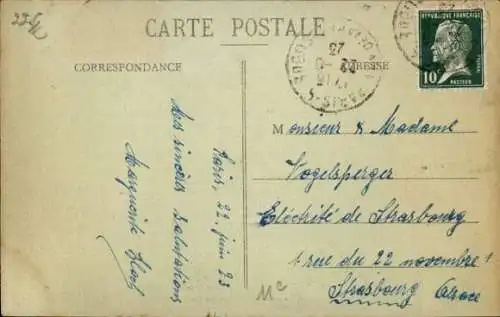 225
CARTE POSTALE
CORRESPONDANCE
ADRESSE
REPUBLIQUE FRANÇAISE
10
PASTEUR
Paris, 22 juin 23
Mes sincères salutations
Marguerite
Monsieur & Madame
Vogelsperger
Eléctrité de Strasbourg
1 rue du 22 novembre 1
Strasbourg Alsace
Mc